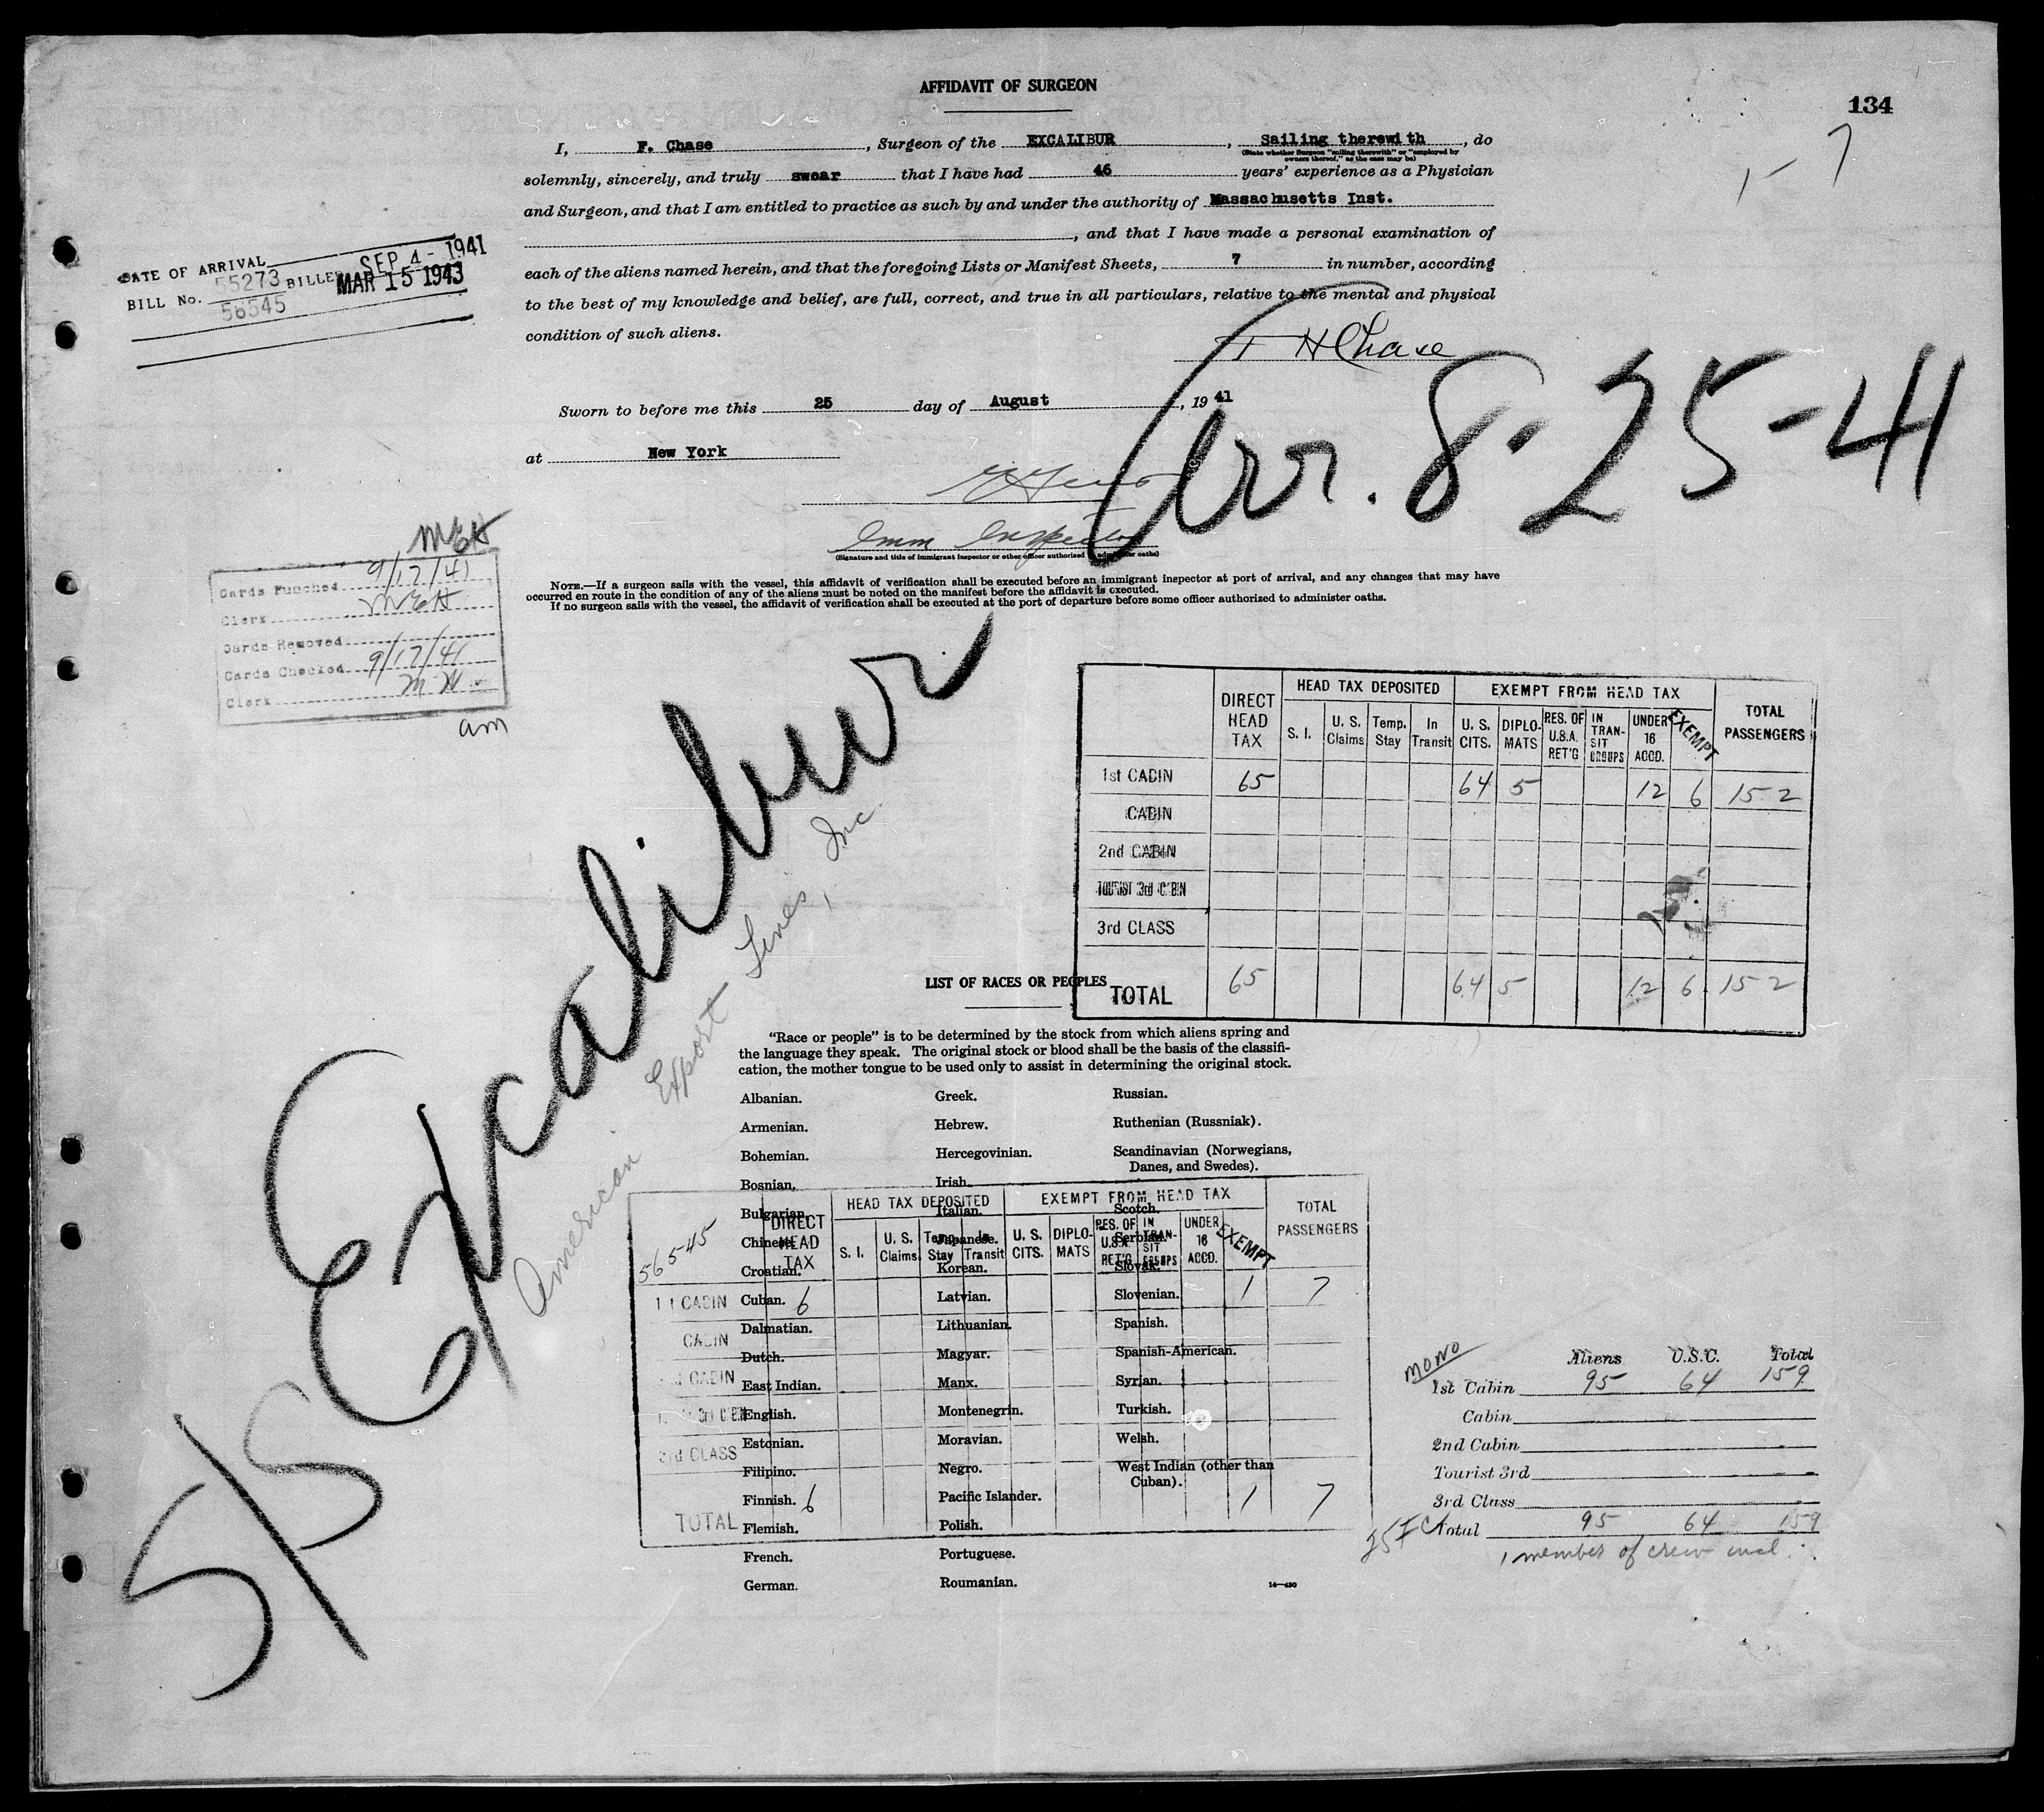 AFFIDAVIT OF SURGEON
134
1-7
I, F. Chase, Surgeon of the EXCALIBUR, Sailing therewith, do
(State whether Surgeon "sailing therewith" or "employed by
owners thereof," as the case may be)
solemnly, sincerely, and truly swear that I have had 46 years' experience as a Physician
and Surgeon, and that I am entitled to practice as such by and under the authority of Massachusetts Inst.
, and that I have made a personal examination of
each of the aliens named herein, and that the foregoing Lists or Manifest Sheets, 7 in number, according
to the best of my knowledge and belief, are full, correct, and true in all particulars, relative to the mental and physical
condition of such aliens.
H Chase
DATE OF ARRIVAL SEP 4-1941
BILL No. 55273 BILLED MAR 15 1943
56545
Sworn to before me this 25 day of August, 19 41
at New York
Arr. 8-25-41
Imm Inspector
(Signature and title of immigrant inspector or other officer authorized to administer oaths)
NOTE.—If a surgeon sails with the vessel, this affidavit of verification shall be executed before an immigrant inspector at port of arrival, and any changes that may have
occurred en route in the condition of any of the aliens must be noted on the manifest before the affidavit is executed.
If no surgeon sails with the vessel, the affidavit of verification shall be executed at the port of departure before some officer authorized to administer oaths.
MEH
Cards Punched 9/17/41
Clerk MEH
Cards Removed
Cards Checked 9/17/41
Clerk
am
S/S Excalibur
American Export Lines, Inc
DIRECT HEAD TAX HEAD TAX DEPOSITED EXEMPT FROM HEAD TAX TOTAL PASSENGERS
S. I. U. S. Claims Temp. Stay In Transit U. S. CITS. DIPLOMATS RES. OF U.S.A. RET'G IN TRANSIT GROUPS UNDER 16 ACCD. EXEMPT
1st CABIN 65 64 5 12 6 152
CABIN
2nd CABIN
TOURIST 3rd CABIN
3rd CLASS
TOTAL 65 64 5 12 6 152
LIST OF RACES OR PEOPLES
"Race or people" is to be determined by the stock from which aliens spring and
the language they speak. The original stock or blood shall be the basis of the classifi-
cation, the mother tongue to be used only to assist in determining the original stock.
Albanian.
Armenian.
Bohemian.
Bosnian.
Bulgarian.
Chinese.
Croatian.
Cuban.
Dalmatian.
Dutch.
East Indian.
English.
Estonian.
Filipino.
Finnish.
Flemish.
French.
German.
Greek.
Hebrew.
Hercegovinian.
Irish.
Italian.
Japanese.
Korean.
Latvian.
Lithuanian.
Magyar.
Manx.
Montenegrin.
Moravian.
Negro.
Pacific Islander.
Polish.
Portuguese.
Roumanian.
Russian.
Ruthenian (Russniak).
Scandinavian (Norwegians,
Danes, and Swedes).
Scotch.
Serbian.
Slovak.
Slovenian.
Spanish.
Spanish-American.
Syrian.
Turkish.
Welsh.
West Indian (other than
Cuban).
56545
DIRECT HEAD TAX HEAD TAX DEPOSITED EXEMPT FROM HEAD TAX TOTAL PASSENGERS
S. I. U. S. Claims Temp. Stay In Transit U. S. CITS. DIPLOMATS RES. OF U.S.A. RET'G IN TRANSIT GROUPS UNDER 16 ACCD. EXEMPT
1st CABIN 6 1 7
CABIN
2nd CABIN
3rd CABIN
3rd CLASS
TOTAL 6 1 7
mono
Aliens U.S.C. Total
1st Cabin 95 64 159
Cabin
2nd Cabin
Tourist 3rd
3rd Class
Total 95 64 159
1 member of crew incl.
14—430